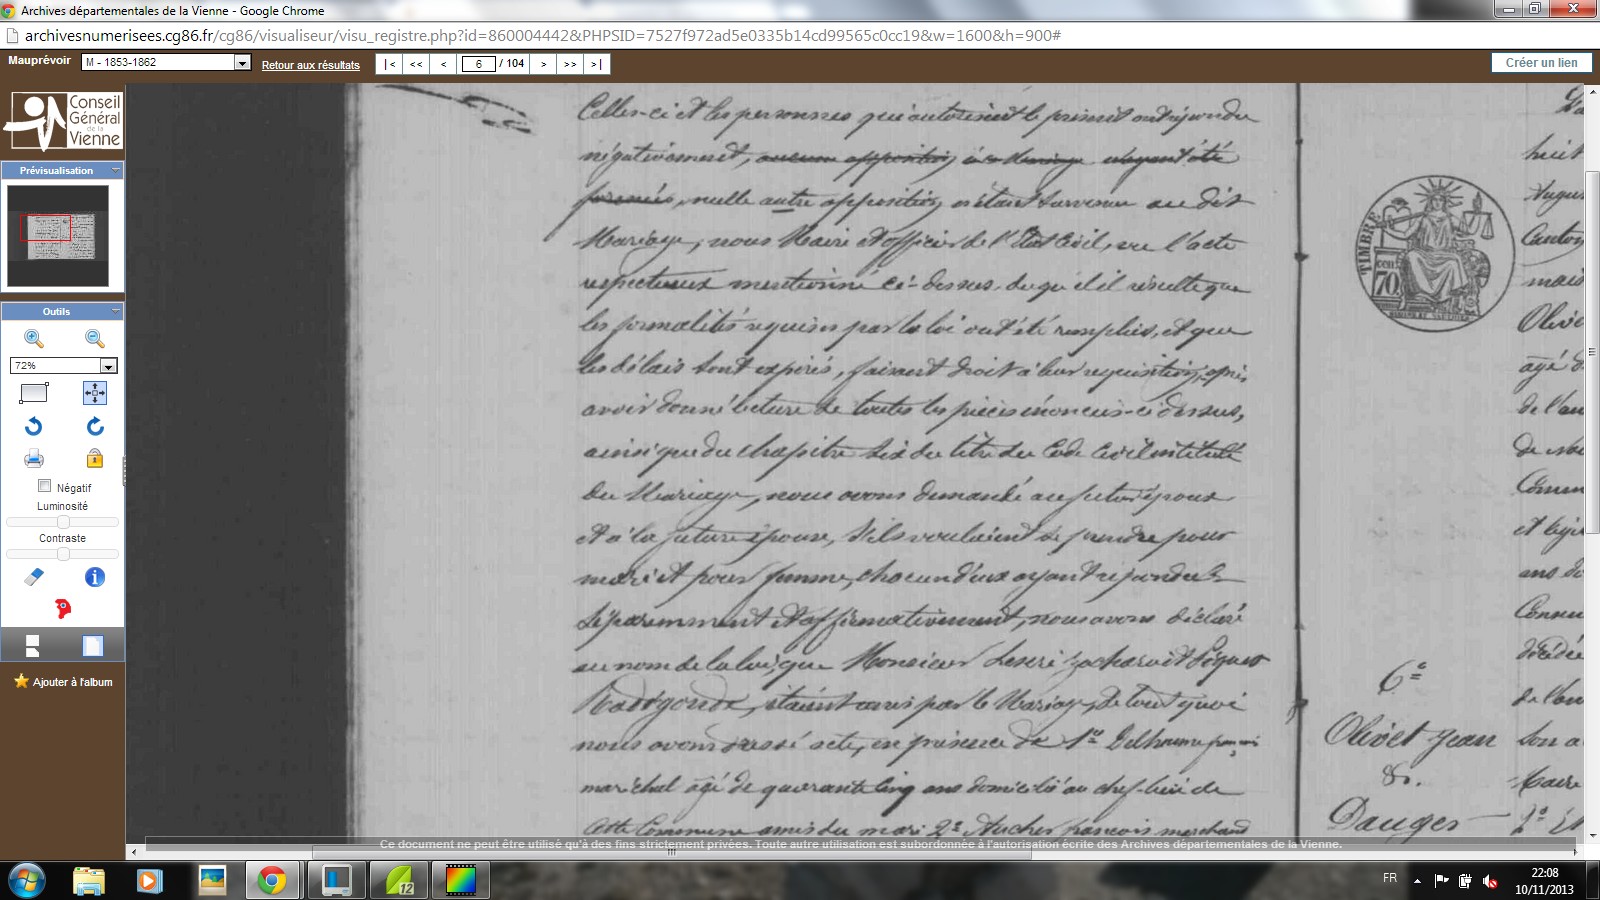 Archives départementales de la Vienne - Google Chrome
archivesnumerisees.cg86.fr/cg86/visualiseur/visu_registre.php?id=860004442&PHPSID=7527f972ad5e0335b14cd99565c0cc19&w=1600&h=900#
Mauprévoir M - 1853-1862 Retour aux résultats |< << < 6 / 104 > >> >| Créer un lien
Conseil
Général
de la
Vienne
Prévisualisation
Outils
72%
Négatif
Luminosité
Contraste
Ajouter à l'album
Celles-ci et les personnes qui autorisent le présent ont répondu
négativement, aucune opposition à ce Mariage n'ayant été
formée, nulle autre opposition n'étant survenue au dit
Mariage, nous Maire et officier de l'État Civil, vu l'acte
respectueux mentionné ci-dessus, duquel il résulte que
les formalités requises par la loi ont été remplies, et que
les délais sont expirés, faisant droit à leur requisition, après
avoir donné lecture de toutes les pièces énoncées ci-dessus,
ainsi que du chapitre six du titre du Code Civil intitulé
Du Mariage, nous avons demandé au futur époux
et à la future épouse, s'ils voulaient se prendre pour
mari et pour femme, chacun d'eux ayant répondu
séparemment et affirmativement, nous avons déclaré
au nom de la loi, que Monsieur
Radégonde, étaient unis par le Mariage, de tout quoi
nous avons dressé acte, en présence de 1° Delhoume françois
maréchal âgé de quarante cinq ans domicilié au chef-lieu de
Cette Commune amis du mari 2° françois marchand
TIMBRE
70
6e
Olivet Jean
&.
Dauger
huit
Canton
mais
Olivie
âgé d
de l'au
Commu
et légi
ans do
décédé
de l'au
son a
Maire
Ce document ne peut être utilisé qu'à des fins strictement privées. Toute autre utilisation est subordonnée à l'autorisation écrite des Archives départementales de la Vienne.
12
FR
22:08
10/11/2013